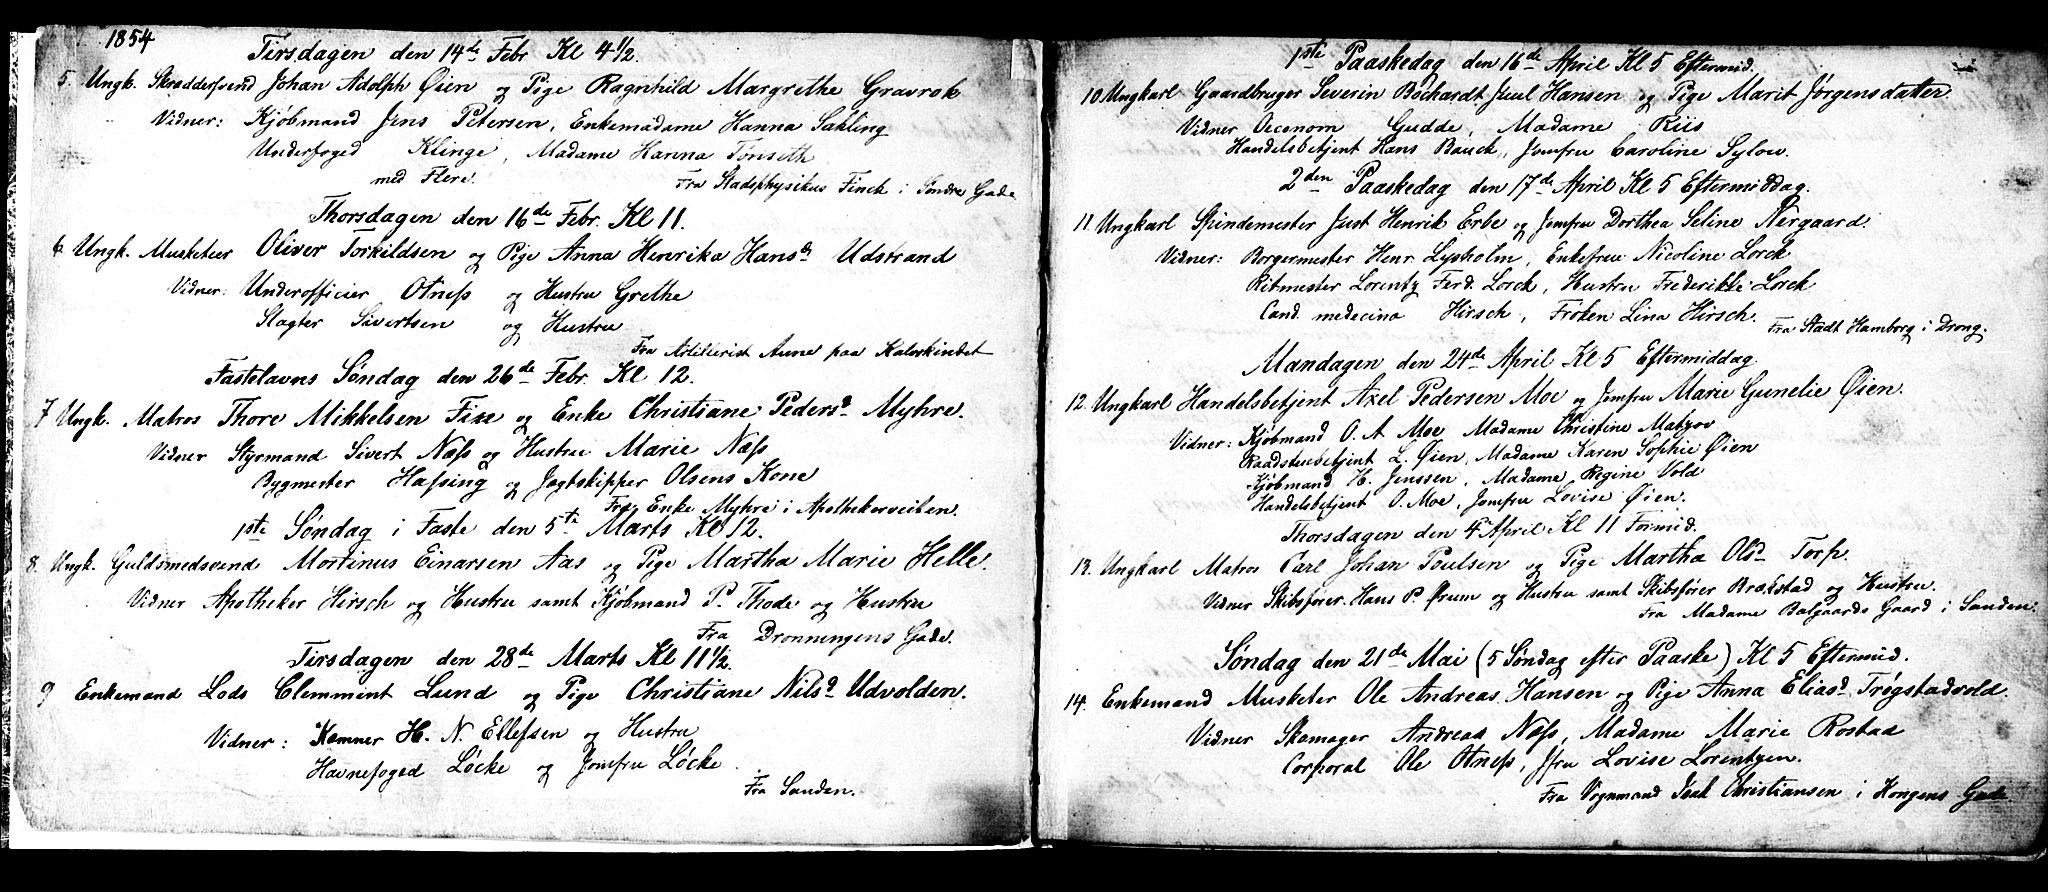 1854
Tirsdagen den 14de Febr Kl 4 1/2.
5. Ungk. Skrædderfvend Johan Adolph Øien og Pige Ragnhild Margrethe Gravrok
Vidner: Kjøbmand Jens Petersen, Enkemadame Hanna Sahling
Underfoged Klinge, Madame Hanna Tønseth
med Flere. Fra Stadsphysikus Finck i Søndre Gade
Thorsdagen den 16de Febr. Kl 11.
6 Ungk. Musketeer Oliver Torkildsen og Pige Anna Henrika Hansdr Udstrand
Vidner: Underofficier Otness og Hustru Grethe
Slagter Sivertsen og Hustru
Fra Artillerist Aune paa Kalvskindet
Fastelavns Søndag den 26de Febr. Kl 12.
7 Ungk. Matros Thore Mikkelsen Fixe og Enke Christiane Pedersd. Myhre.
Vidner Styrmand Sivert Næss og Hustru Marie Næss
Bygmester Hassing og Jagtskipper Olsens Kone
Fra Enke Myhre i Apothekerveiten.
1ste Søndag i Faste den 5te Marts Kl 12.
8. Ungk. Guldsmedsvend Mortinus Einarsen Aas og Pige Martha Marie Helle.
Vidner Apotheker Hirsch og Hustru samt Kjøbmand P. Thode og Hustru
Fra Dronningens Gade.
Tirsdagen den 28de Marts Kl 11 1/2.
9 Enkemand Lods Clemmint Lund og Pige Christiane Nilsd. Udvolden.
Vidner: Kæmner H. N. Ellefsen og Hustru
Havnefoged Løcke og Jomfru Løcke.
Fra Sanden.
1ste Paaskedag den 16de April Kl 5 Eftermid.
10 Ungkarl Gaardbruger Severin Bochardt Juul Hansen og Pige Marit Jørgensdatter.
Vidner Oeconom Gudde, Madame Riis
Handelsbetjent Hans Bauck, Jomfru Caroline Sylow.
2den Paaskedag den 17de April Kl 5 Eftermiddag.
11. Ungkarl Spindemester Just Henrik Erbe og Jomfru Dorthea Seline Nergaard.
Vidner: Borgermester Henr Lysholm, Enkefrue Nicoline Lorck
Ritmester Lorentz Ferd. Lorck, Hustru Frederikke Lorck
Cand. medecina Hirsch, Frøken Lina Hirsch.
Fra Stadt Hamborg i Drong.
Mandagen den 24de April Kl 5 Eftermiddag.
12. Ungkarl Handelsbetjent Axel Pedersen Moe og Jomfru Marie Gunelie Øien.
Vidner: Kjøbmand O. A Moe Madame Christine Matzov
Raadstuebetjent L. Øien, Madame Karen Sophie Øien
Kjøbmand H. Jenssen, Madame Regine Vold
Handelsbetjent O. Moe, Jomfru Lovise Øien.
Thorsdagen den 4de April Kl 11 Formid.
13. Ungkarl Matros Carl Johan Poulsen og Pige Martha Olsd. Torp.
Vidner Skibsfører. Hans P. Ørum og Hustru samt Skibsfører Brækstad og Hustru.
Fra Madame Balgaards Gaard i Sanden.
Søndag den 21de Mai (5 Søndag efter Paaske) Kl 5 Eftermid.
14. Enkemand Musketer Ole Andreas Hansen og Pige Anna Eliasd. Trøgstadvold.
Vidner Skomager Andreas Næss, Madame Marie Rostad
Corporal Ole Otness, Jfru Lovise Lorentzen.
Fra Vognmand Isak Christiansen i Kongens Gade